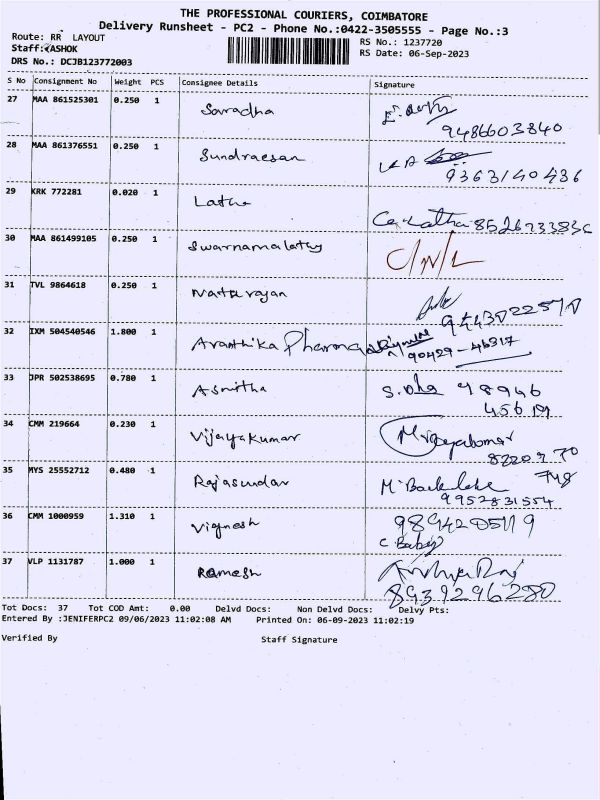 THE PROFESSIONAL COURIERS, COIMBATORE
Delivery Runsheet - PC2 - Phone No.:0422-3505555 - Page No.:3
Route: RR LAYOUT
RS No.: 1237720
Staff: ASHOK
RS Date: 06-Sep-2023
DRS No.: DCJB123772003
S No Consignment No Weight PCS Consignee Details Signature
27 MAA 861525301 0.250 1 Saradha
9486603840
28 MAA 861376551 0.250 1 Sundraesan
9363140436
29 KRK 772281 0.020 1 Latha
Latha 8526733836
30 MAA 861499105 0.250 1 Swarnamalathy C/N/L
31 TVL 9864618 0.250 1 Natarajan
9443022570
32 IXM 504540546 1.800 1 Avanthika Pharma
90429-46317
33 JPR 502538695 0.780 1 Asmitha S. 98946
456
34 CMM 219664 0.230 1 Vijayakumar
8220770
748
35 MYS 25552712 0.480 1 Rajasundar M.
9952831554
36 CMM 1000959 1.310 1 Vignesh 9894205119
C Baby
37 VLP 1131787 1.000 1 Ramesh
8939296280
Tot Docs: 37 Tot COD Amt: 0.00 Delvd Docs: Non Delvd Docs: Delvy Pts:
Entered By :JENIFERPC2 09/06/2023 11:02:08 AM Printed On: 06-09-2023 11:02:19
Verified By Staff Signature